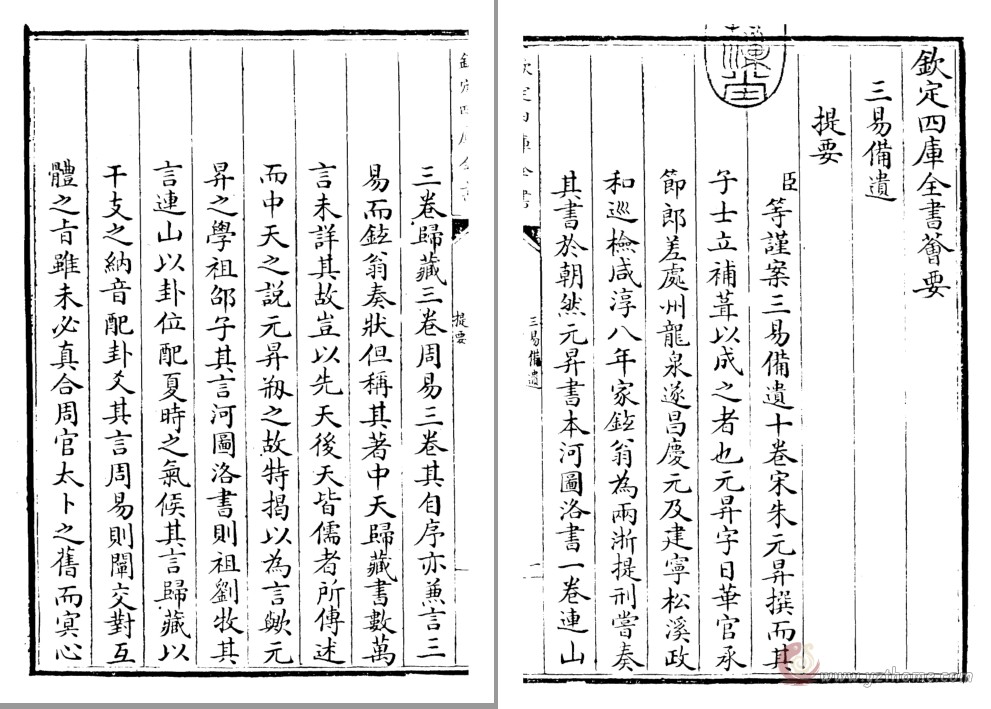 欽定四庫全書薈要
三易備遺
提要
臣等謹案三易備遺十卷宋朱元昇撰而其
子士立補葺以成之者也元昇字日華官承
節郎差處州龍泉遂昌慶元及建寧松溪政
和巡檢咸淳八年家鉉翁為兩浙提刑嘗奏
其書於朝然元昇書本河圖洛書一卷連山
欽定四庫全書
三易備遺
一
欽定四庫全書
提要
三卷歸藏三卷周易三卷其自序亦兼言三
易而鉉翁奏狀但稱其著中天歸藏書數萬
言未詳其故豈以先天後天皆儒者所傳述
而中天之説元昇剏之故特揭以為言歟元
昇之學祖邵子其言河圖洛書則祖劉牧其
言連山以卦位配夏時之氣候其言歸藏以
干支之納音配卦爻其言周易則闡交對互
體之旨雖未必真合周官太卜之舊而㝠心
www.yzthome.com